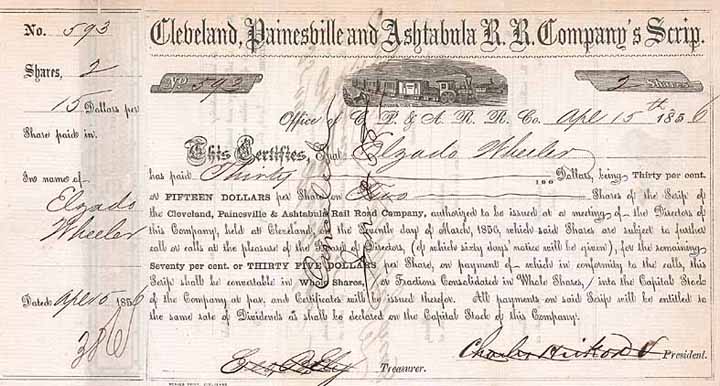 No. 593
Shares, 2
15 Dollars per
Share paid in.
In name of
Elzado
Wheeler
Dated Apl 15 1856
Cleveland, Painesville and Ashtabula R. R. Company's Scrip.
No 593
2 Shares
Office of C. P. & A. R. R. Co. Apl 15th 1856
This Certifies, That Elzado Wheeler
has paid Thirty 100 Dollars, being Thirty per cent.
or FIFTEEN DOLLARS per Share on Two Shares of the Scrip of
the Cleveland, Painesville & Ashtabula Rail Road Company, authorized to be issued at a meeting of the Directors of
this Company, held at Cleveland, on the Twenty day of March, 1856, which said Shares are subject to further
call or calls at the pleasure of the Board of Directors, (of which sixty days notice will be given), for the remaining
Seventy per cent. or THIRTY FIVE DOLLARS per Share, on payment of which in conformity to the calls, this
Scrip shall be convertable in Whole Shares, or Fractions Consolidated in Whole Shares, into the Capital Stock
of the Company at par, and Certificates will be issued therefor. All payments on said Scrip will be entitled to
the same rate of Dividends as shall be declared on the Capital Stock of this Company.
Treasurer.
Charles Hickox President.